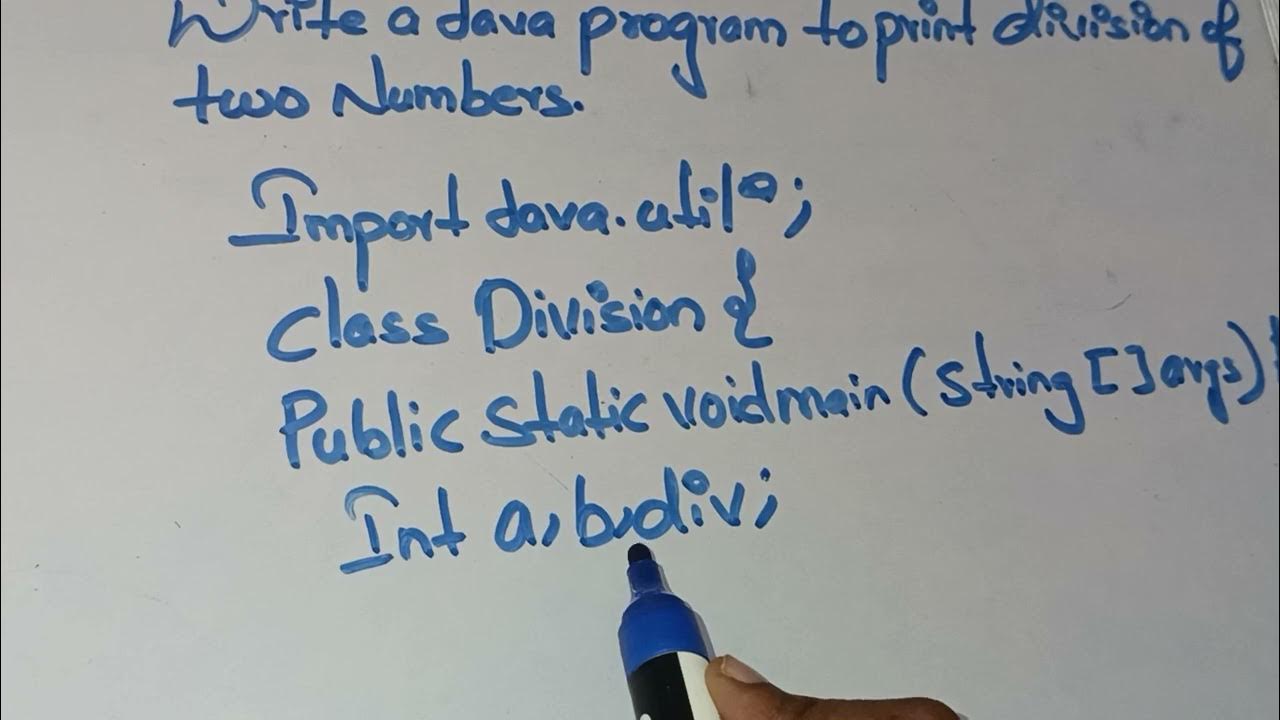 Write a Java program to print division of
two Numbers.
Import Java.util*;
class Division {
Public static void main (String [] args) {
Int a, b, div;